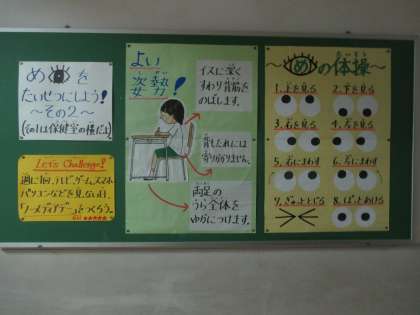 めを
たいせつにしよう!
～その2～
(その1は保健室の横だよ)
Let's Challenge!
週に1回、テレビ、ゲーム、スマホ
パソコンなどを見ない日、
「ノーメディアデー」をつくろう。
よい
姿勢!
イスに深く
すわり背筋を
のばします。
背もたれには
寄りかかりません。
両足の
うら全体を
ゆかにつけます。
～めの体操～
たいそう
1.上を見る
2.下を見る
3.右を見る
4.左を見る
5.右にまわす
6.左にまわす
7.ぎゅっととじる
8.ぱっとあける